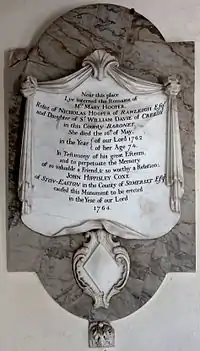 Near this place
Lye interred the Remains of
Mrs. MARY HOOPER,
Relict of NICHOLAS HOOPER of RAWLEIGH Esqr.
and Daughter of Sr. WILLIAM DAVIE of CREEDY
in this County BARONET,
She died the 16th. of May,
in the Year of our Lord 1762
of her Age 74.
In Testimony of his great Esteem,
and to perpetuate the Memory
of so valuable a Friend, & so worthy a Relation;
JOHN HIPPISLEY COXE
of STON-EASTON in the County of SOMERSET Esqr.
caused this Monument to be erected
in the Year of our Lord
1764.